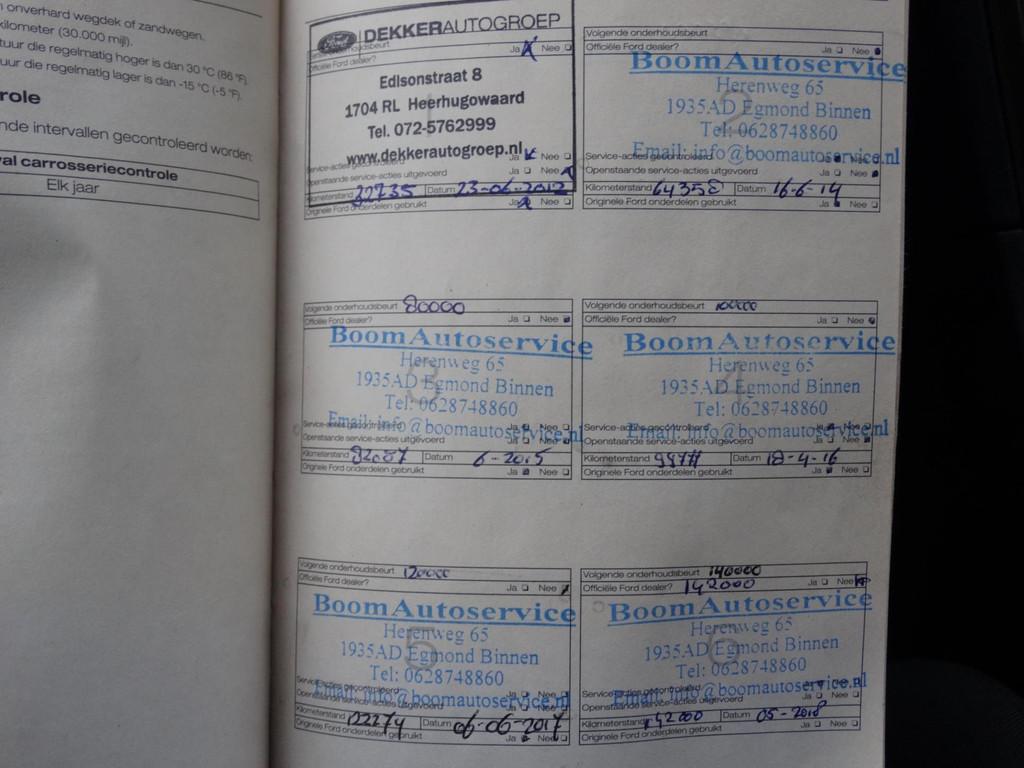 onverhard wegdek of zandwegen.
kilometer (30.000 mijl).
tuur die regelmatig hoger is dan 30 °C (86 °F).
uur die regelmatig lager is dan -15 °C (-5 °F).
role
nde intervallen gecontroleerd worden:
val carrosseriecontrole
Elk jaar
Ford DEKKERAUTOGROEP
Officiële Ford dealer? Ja Nee
Edisonstraat 8
1704 RL Heerhugowaard
Tel. 072-5762999
www.dekkerautogroep.nl
Service-acties Ja Nee
Openstaande service-acties uitgevoerd Ja Nee
Kilometerstand 22735 Datum 23-06-2012
Originele Ford onderdelen gebruikt Ja Nee
Volgende onderhoudsbeurt
Officiële Ford dealer? Ja Nee
Boom Autoservice
Herenweg 65
1935AD Egmond Binnen
Tel: 0628748860
Email: info@boomautoservice.nl
Service-acties gecontroleerd Nee
Openstaande service-acties uitgevoerd Ja Nee
Kilometerstand 64358 Datum 16-6-14
Originele Ford onderdelen gebruikt Ja Nee
Volgende onderhoudsbeurt 80000
Officiële Ford dealer? Ja Nee
Boom Autoservice
Herenweg 65
1935AD Egmond Binnen
Tel: 0628748860
Email: info@boomautoservice.nl
Service-acties gecontroleerd
Openstaande service-acties uitgevoerd Ja Nee
Kilometerstand 82087 Datum 6-2015
Originele Ford onderdelen gebruikt Ja Nee
Volgende onderhoudsbeurt 100000
Officiële Ford dealer? Ja Nee
Boom Autoservice
Herenweg 65
1935AD Egmond Binnen
Tel: 0628748860
Email: info@boomautoservice.nl
Service-acties gecontroleerd
Openstaande service-acties uitgevoerd Ja Nee
Kilometerstand Datum 18-4-16
Originele Ford onderdelen gebruikt Ja Nee
Volgende onderhoudsbeurt 120000
Officiële Ford dealer? Ja Nee
Boom Autoservice
Herenweg 65
1935AD Egmond Binnen
Tel: 0628748860
Email: info@boomautoservice.nl
Service-acties gecontroleerd Ja Nee
Openstaande service-acties uitgevoerd
Kilometerstand 122274 Datum 06-06-2017
Originele Ford onderdelen gebruikt Ja Nee
Volgende onderhoudsbeurt 140000
Officiële Ford dealer? 142000 Ja Nee
Boom Autoservice
Herenweg 65
1935AD Egmond Binnen
Tel: 0628748860
Email: info@boomautoservice.nl
Service-acties gecontroleerd Ja Nee
Openstaande service-acties uitgevoerd Ja Nee
Kilometerstand 142000 Datum 05-2018
Originele Ford onderdelen gebruikt Ja Nee